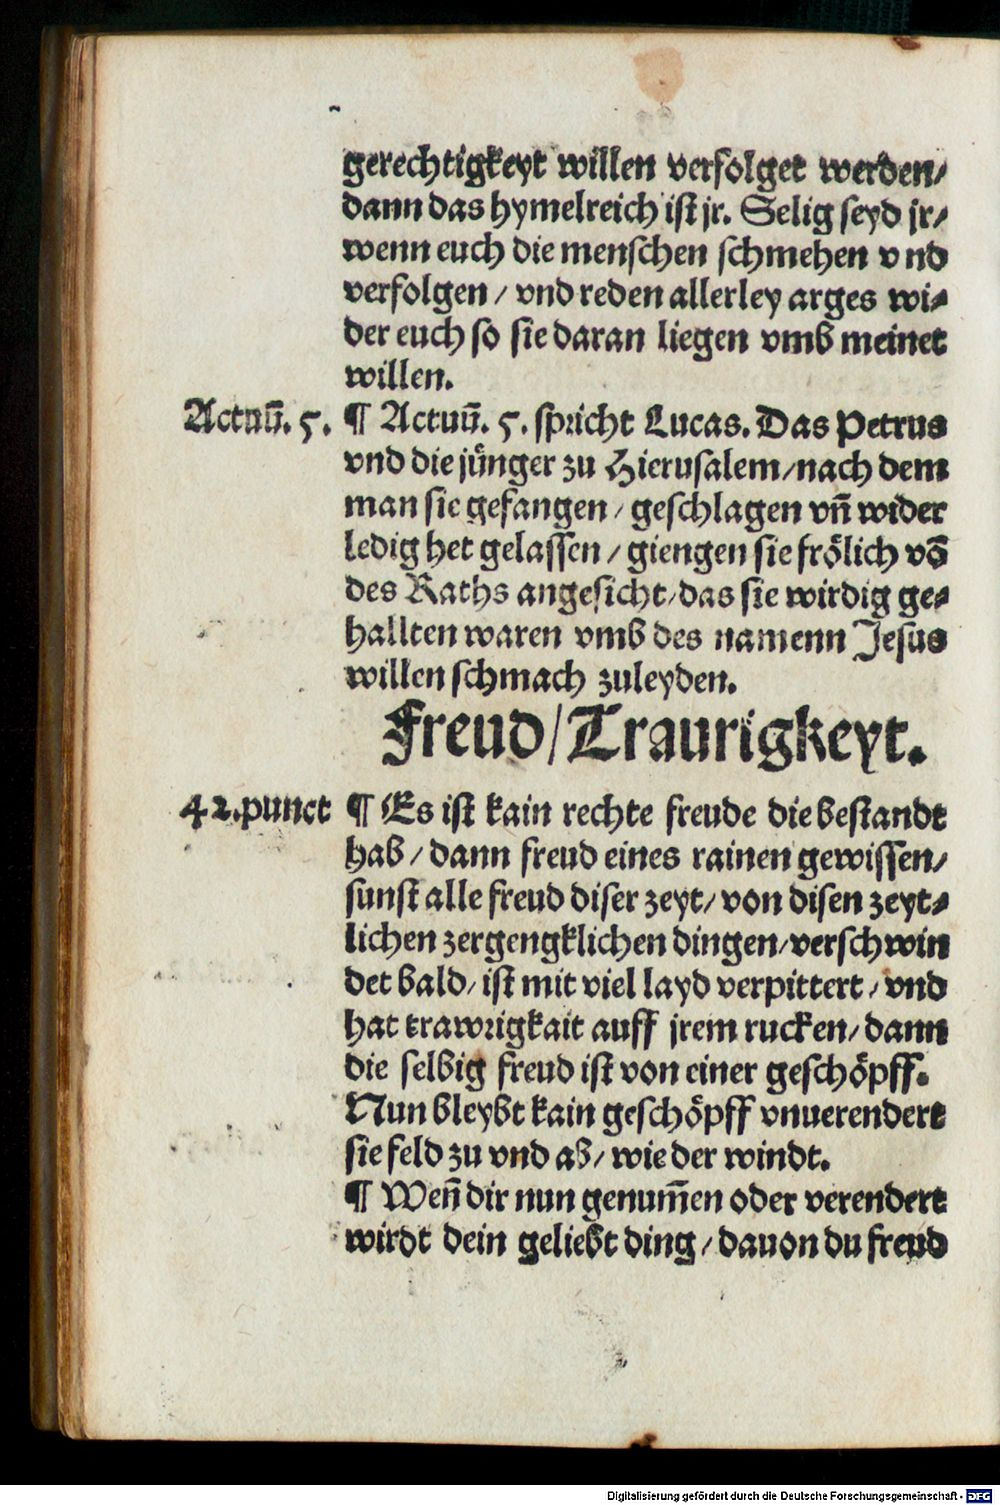 gerechtigkeyt willen verfolget werden/
dann das hymelreich ist jr. Selig seyd jr/
wenn euch die menschen schmehen vnd
verfolgen / vnd reden allerley arges wi-
der euch so sie daran liegen vmb meinet
willen.
Actuū. 5. ¶ Actuū. 5. spricht Lucas. Das Petrus
vnd die jünger zu Hierusalem/nach dem
man sie gefangen / geschlagen vn̄ wider
ledig het gelassen / giengen sie frölich vō
des Raths angesicht/das sie wirdig ge-
hallten waren vmb des namenn Jesus
willen schmach zuleyden.
Freud/Traurigkeyt.
42.punct ¶ Es ist kain rechte freude die bestandt
hab / dann freud eines rainen gewissen/
sunst alle freud diser zeyt/ von disen zeyt-
lichen zergengklichen dingen/verschwin
det bald/ ist mit viel layd verpittert / vnd
hat trawrigkait auff jrem rucken/ dann
die selbig freud ist von einer geschöpff.
Nun bleybt kain geschöpff vnuerendert
sie feld zu vnd ab/ wie der windt.
¶ Wen̄ dir nun genum̄en oder verendert
wirdt dein geliebt ding / dauon du freud
Digitalisierung gefördert durch die Deutsche Forschungsgemeinschaft - DFG